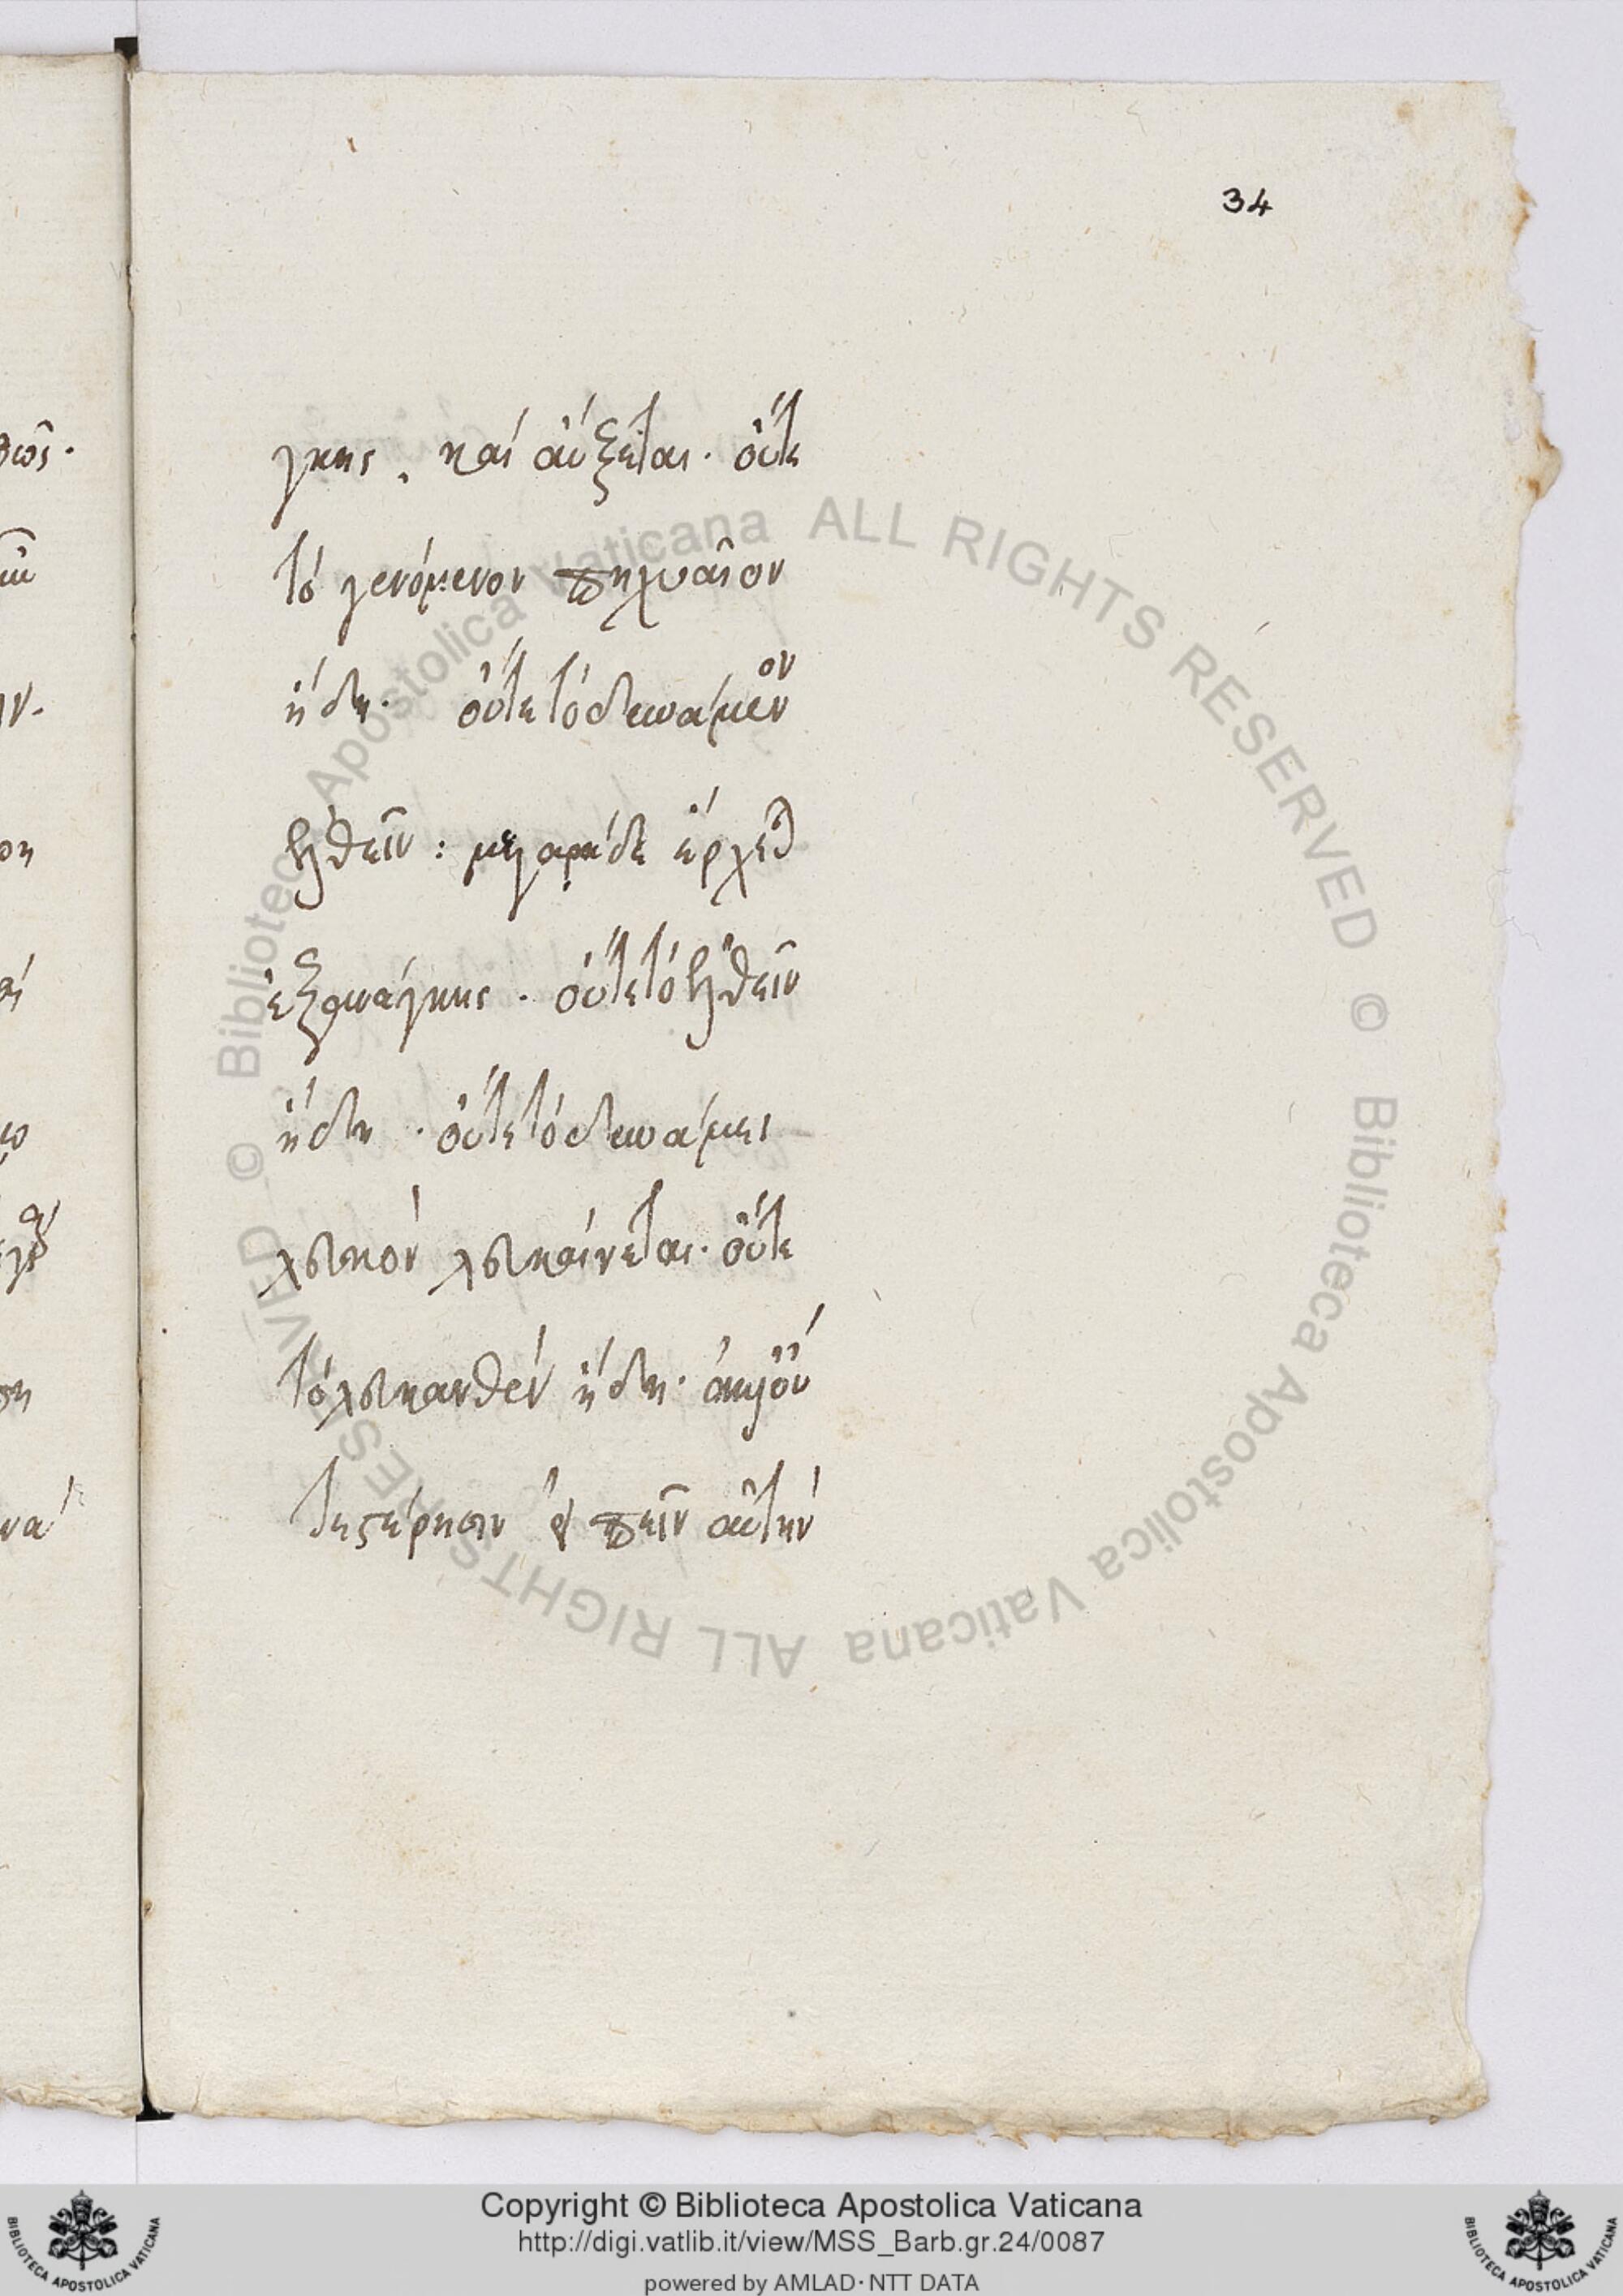 34
γκης. καὶ αὔξεται. οὔτε
τὸ γενόμενον πηχυαῖον
ἤδη. οὔτε τὸ δυνάμενον
ἐλθεῖν: μέγαράδε ἔρχεται
ἐξανάγκης. οὔτε τὸ ἐλθεῖν
ἤδη. οὔτε τὸ δυνάμει
λευκὸν λευκαίνεται. οὔτε
τὸ λευκανθὲν ἤδη.
στέρησιν εἰπεῖν αὐτὴν
Copyright © Biblioteca Apostolica Vaticana
http://digi.vatlib.it/view/MSS_Barb.gr.24/0087
powered by AMLAD·NTT DATA
© Biblioteca Apostolica Vaticana ALL RIGHTS RESERVED
© Biblioteca Apostolica Vaticana ALL RIGHTS RESERVED
BIBLIOTECA APOSTOLICA VATICANA
BIBLIOTECA APOSTOLICA VATICANA